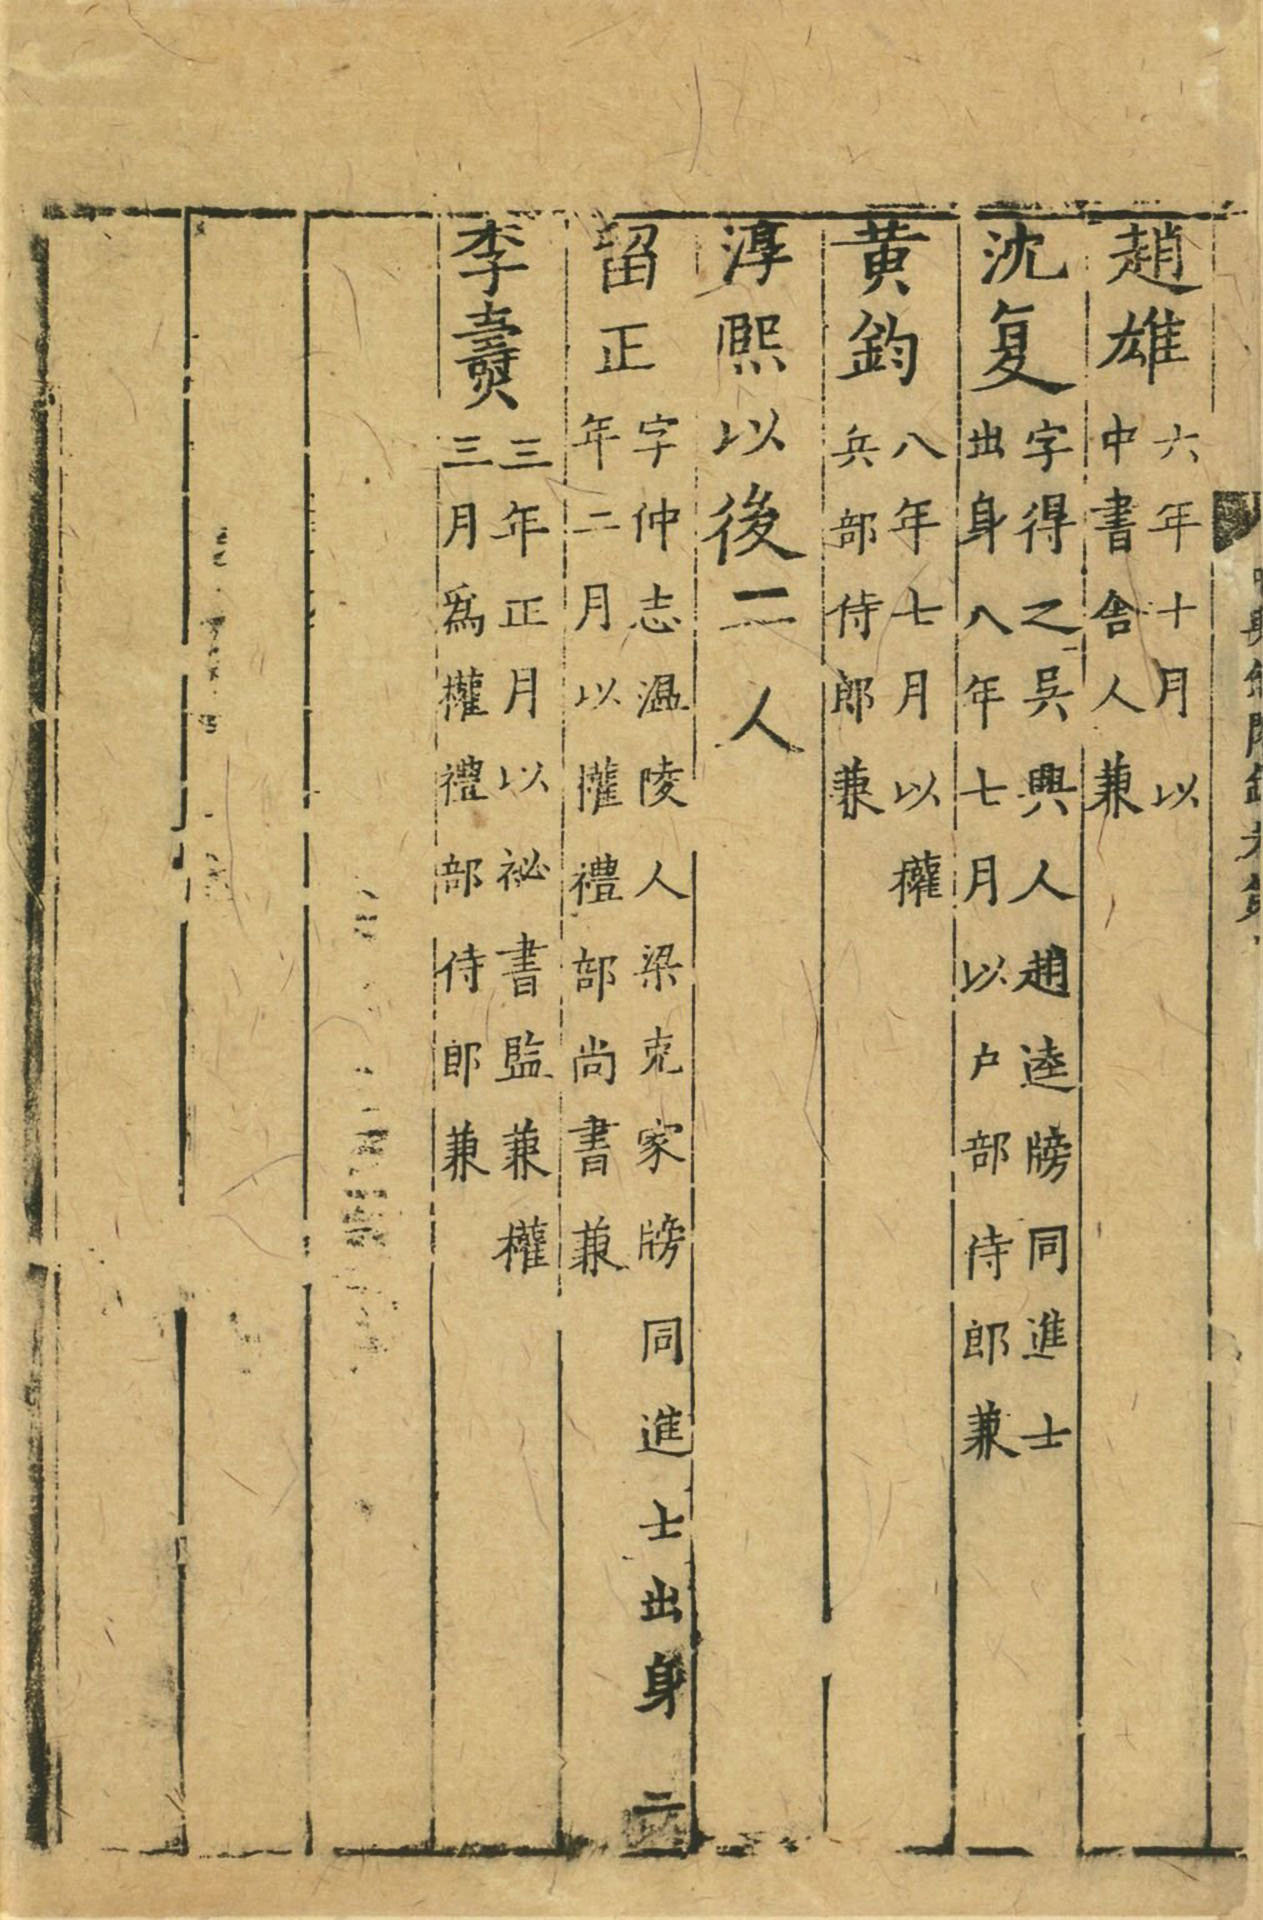 趙雄六年十月以
中書舍人兼
沈复字得之吳興人趙逵牓同進士
出身八年七月以户部侍郎兼
黄鈞八年七月以權
兵部侍郎兼
淳熙以後二人
留正字仲志温陵人梁克家牓同進士出身
年二月以權禮部尚書兼
李燾三年正月以祕書監兼權
三月爲權禮部侍郎兼